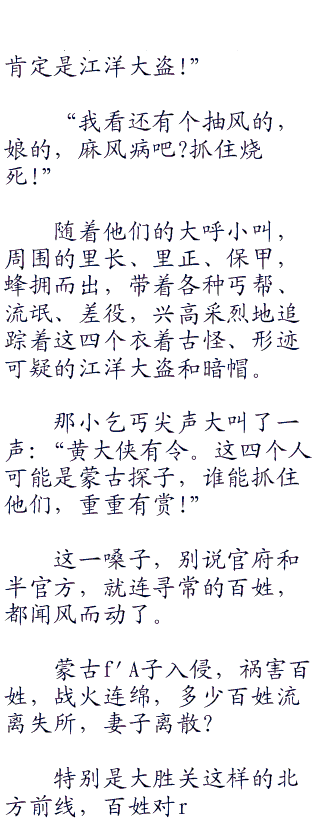 肯定是江洋大盗!”
“我看还有个抽风的，
娘的，麻风病吧?抓住烧
死!”
随着他们的大呼小叫，
周围的里长、里正、保甲，
蜂拥而出，带着各种丐帮、
流氓、差役，兴高采烈地追
踪着这四个衣着古怪、形迹
可疑的江洋大盗和暗帽。
那小乞丐尖声大叫了一
声：“黄大侠有令。这四个人
可能是蒙古探子，谁能抓住
他们，重重有赏!”
这一嗓子，别说官府和
半官方，就连寻常的百姓，
都闻风而动了。
蒙古f′A子入侵，祸害百
姓，战火连绵，多少百姓流
离失所，妻子离散?
特别是大胜关这样的北
方前线，百姓对r